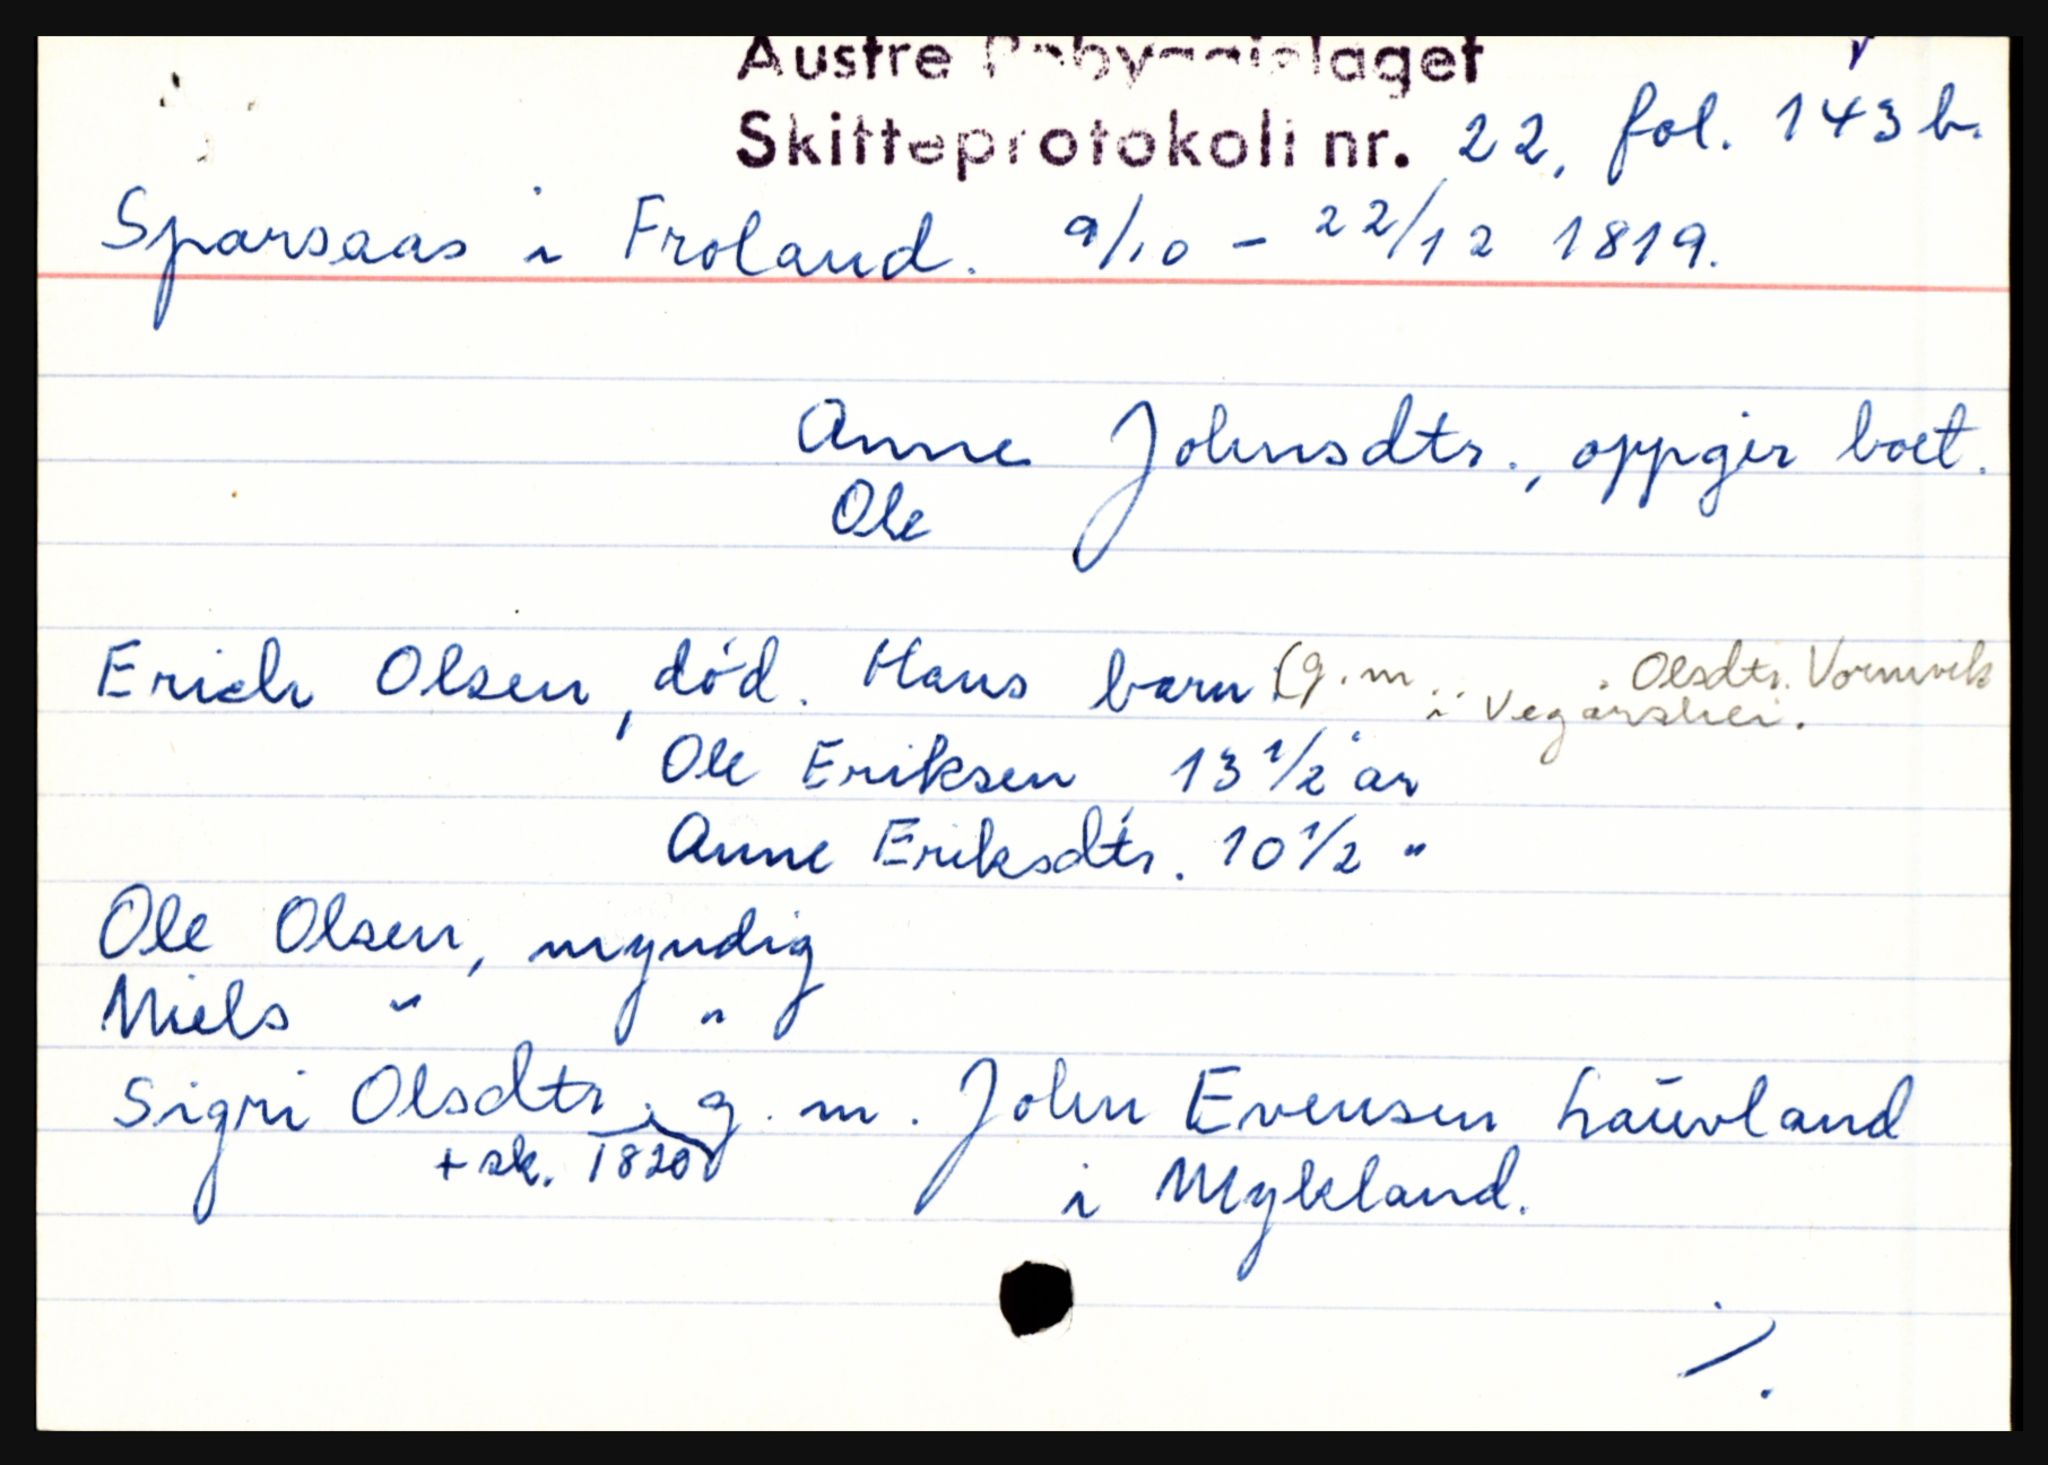 Austre Robyggjelaget
Skifteprotokoll nr. 22, fol. 143 b.
Sparsaas i Froland. 9/10 - 22/12 1819.
Anne Johnsdtr., oppgir boet.
Ole
Erich Olsen, død. Hans barn: (g.m. .. Olsdtr. Vormvik
i Vegårshei.
Ole Eriksen 13 1/2 år
Anne Eriksdtr. 10 1/2 "
Ole Olsen, myndig
Niels " "
Sigri Olsdtr. g. m. John Evensen Lauvland
+ sk. 1820 i Mykland.